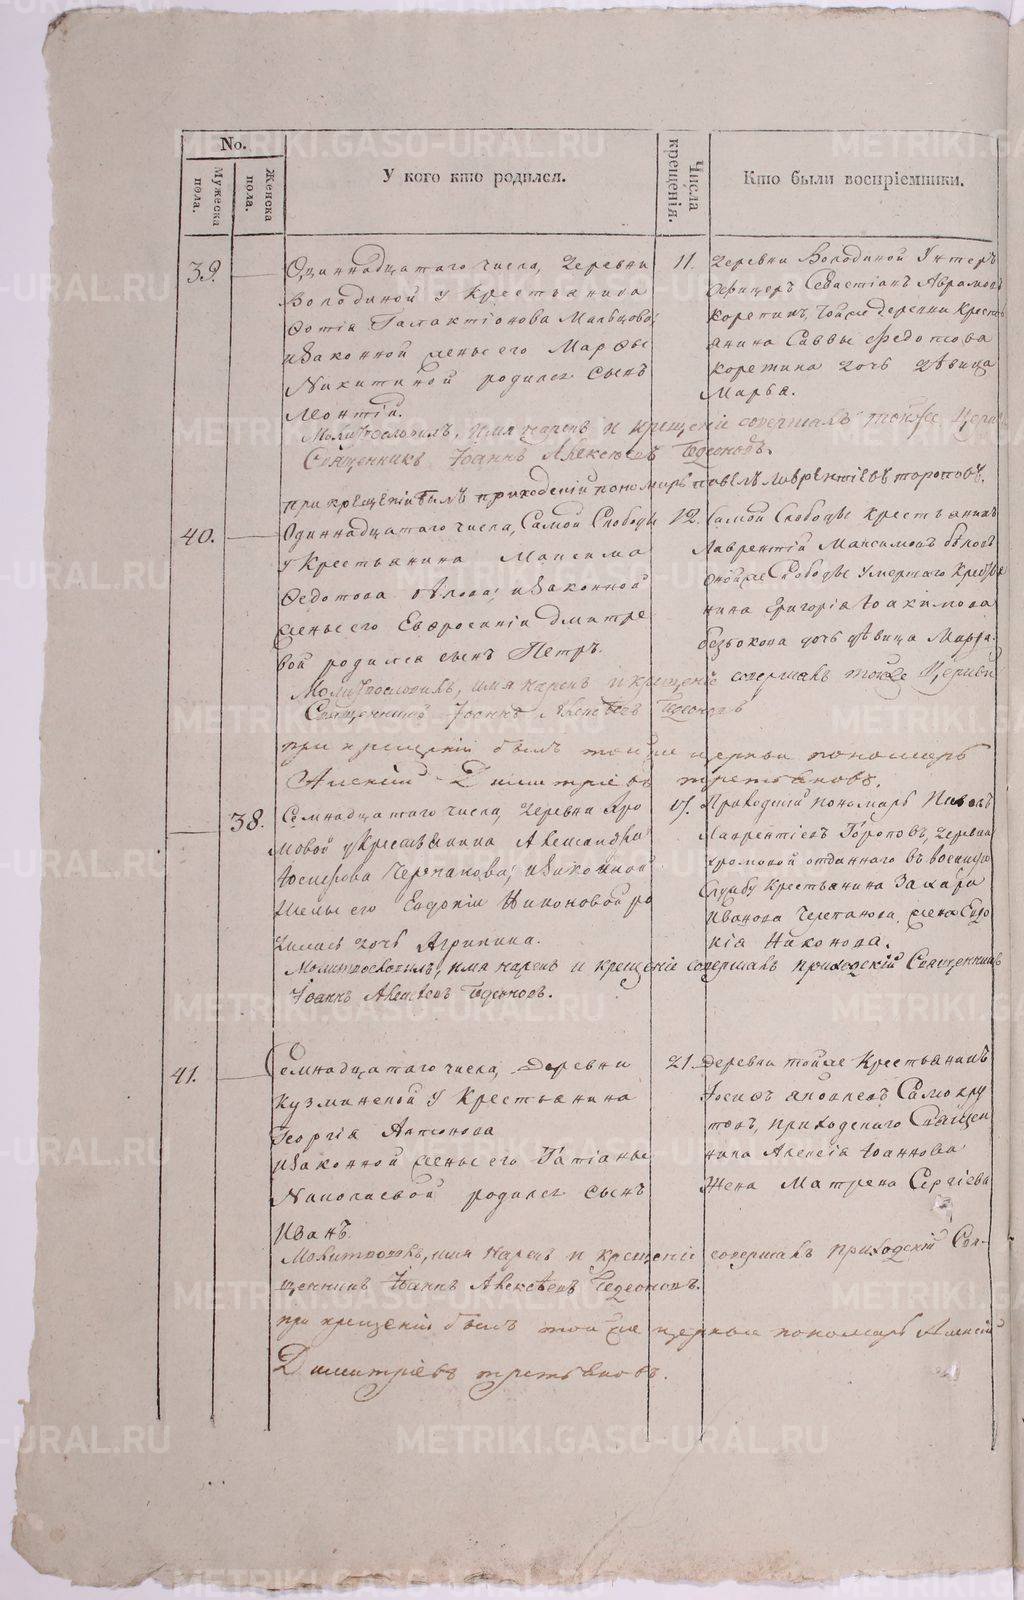 No.
Мужеска пола.
Женска пола.
У кого кто родился.
Числа крещенія.
Кто были воспріемники.
39.
Одиннадцатаго числа, деревни
Володиной у Крестьянина
Фотія Галактіонова Мальцова,
и Законной жены его Марѳы
Никитиной родился сынъ
Леонтій.
11.
деревни Володиной Унтеръ
Офицеръ Севастіанъ Аврамовъ
Корепинъ, той же деревни Кресть
янина Саввы Федотова
Корепина дочь дѣвица
Марѳа.
Молитвословилъ, имя нарекъ и крещеніе совершалъ тойже Церкви
Священникъ Іоаннъ Алексѣевъ Гедеоновъ.
при крещеніи былъ приходскій пономарь Павелъ Лаврентіевъ Торопов.
40.
Одиннадцатаго числа, Самой Слободы
у Крестьянина Максима
Федотова Бѣлова, и Законной
жены его Евфросиніи Дмитре
вой родился сынъ Петръ.
12.
Самой Слободы Крестьянинъ
Лаврентій Максимовъ Бѣловъ
оной же Слободы умершаго Крестья
нина Григорія Іоакимова
дочь дѣвица Марѳа.
Молитвословилъ, имя нарекъ и крещеніе совершалъ тойже Церкви
Священникъ Іоаннъ Алексѣевъ Гедеоновъ
при крещеніи былъ тойже церкви пономарь
Алексій Димитріевъ Третьяковъ.
38.
Семнадцатаго числа, деревни Хро
мовой у Крестьянина Александра
Іосифова Черепанова, и Законной
жены его Евдокіи Никоновой ро
дилась дочь Агрипина.
17.
Приходскій пономарь Павелъ
Лаврентіевъ Торопов, деревни
Хромовой отданнаго въ военную
Службу Крестьянина Захара
Иванова Черепанова жена Евдо
кія Никонова.
Молитвословилъ, имя нарекъ и крещеніе совершалъ приходскій Священникъ
Іоаннъ Алексѣевъ Гедеоновъ.
41.
Семнадцатаго числа, деревни
Кузминской у Крестьянина
Георгія Антонова
и Законной жены его Татіаны
Николаевой родился сынъ
Иванъ.
21.
деревни тойже Крестьянинъ
Іосифъ Яковлевъ Самокру
товъ, приходскаго Священ
ника Алексія Іоаннова
жена Матрена Сергіева
Молитвословилъ, имя нарекъ и крещеніе совершалъ приходскій Свя-
щенникъ Іоаннъ Алексѣевъ Гедеоновъ.
при крещеніи былъ той же церкви пономарь Алексій
Димитріевъ Третьяковъ.
METRIKI.GASO-URAL.RU